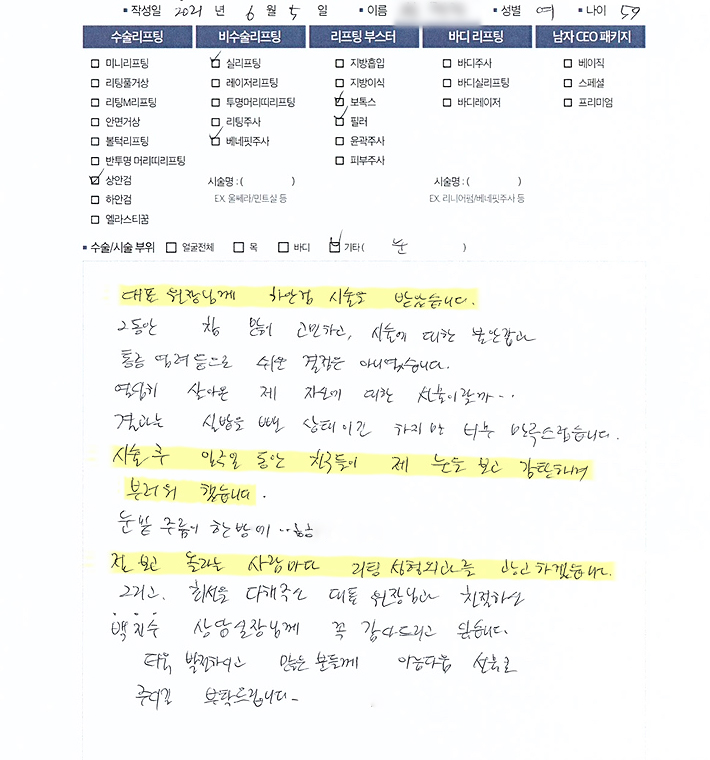 작성일 2021 년 6 월 5 일 이름 성별 여 나이 59
수술리프팅 비수술리프팅 리프팅 부스터 바디 리프팅 남자 CEO 패키지
미니리프팅 실리프팅 지방흡입 바디주사 베이직
리팅풀거상 레이저리프팅 지방이식 바디실리프팅 스페셜
리팅M리프팅 투명머리띠리프팅 보톡스 바디레이저 프리미엄
안면거상 리팅주사 필러
볼턱리프팅 베네핏주사 윤곽주사
반투명 머리띠리프팅 피부주사
상안검 시술명 : ( ) 시술명 : ( )
하안검 EX. 울쎄라/민트실 등 EX. 리니어펌/베네핏주사 등
엘라스티꿈
수술/시술 부위 얼굴전체 목 바디 기타 ( 눈 )
대표 원장님께 하안검 시술을 받았습니다.
그동안 참 많이 고민하고, 시술에 대한 불안감과
통증 염려 등으로 쉬운 결정은 아니었습니다.
열심히 살아온 제 자신에 대한 선물이랄까..
결과는 실밥을 뺀 상태이긴 하지만 너무 만족스럽습니다.
시술 후 일주일 동안 친구들이 제 눈을 보고 감탄하며
부러워 했습니다.
눈밑 주름이 한방에
절 보고 놀라는 사람마다 리팅 성형외과를 광고하겠습니다.
그리고, 최선을 다해주신 대표 원장님과 친절하신
백지수 상담실장님께 꼭 감사드리고 싶습니다.
더욱 발전하시고 많은 분들께 아름다움 선물로
주시길 부탁드립니다-